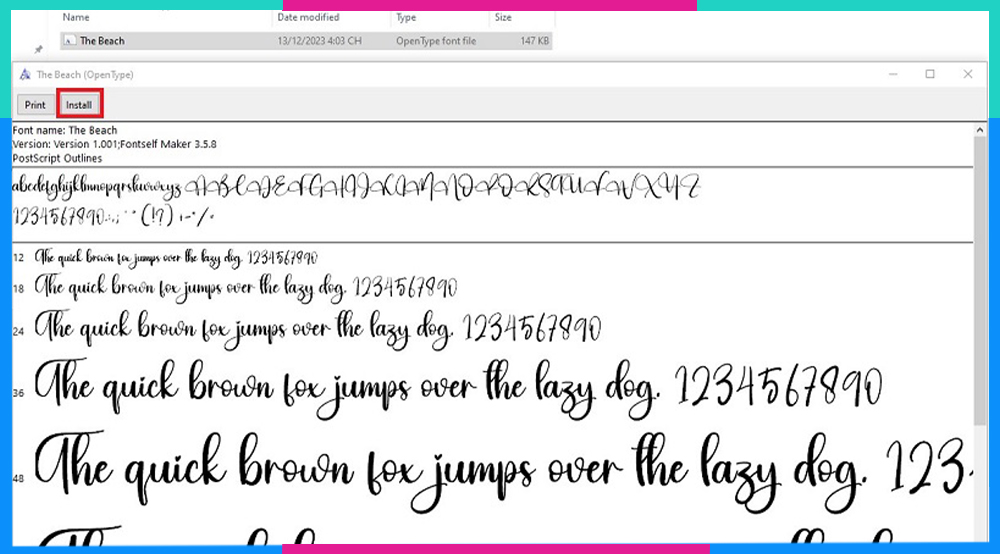 Name Date modified Type Size
The Beach 13/12/2023 4:03 CH OpenType font file 147 KB
The Beach (OpenType)
Print Install
Font name: The Beach
Version: Version 1.001;Fontself Maker 3.5.8
PostScript Outlines
abcdefghijklmnopqrstuvwxyz ABCDEFGHIJKLMNOPQRSTUVWXYZ
1234567890.:,; ' " (!?) +-*/=
12 The quick brown fox jumps over the lazy dog. 1234567890
18 The quick brown fox jumps over the lazy dog. 1234567890
24 The quick brown fox jumps over the lazy dog. 1234567890
36 The quick brown fox jumps over the lazy dog. 1234567890
48 The quick brown fox jumps over the lazy dog. 123